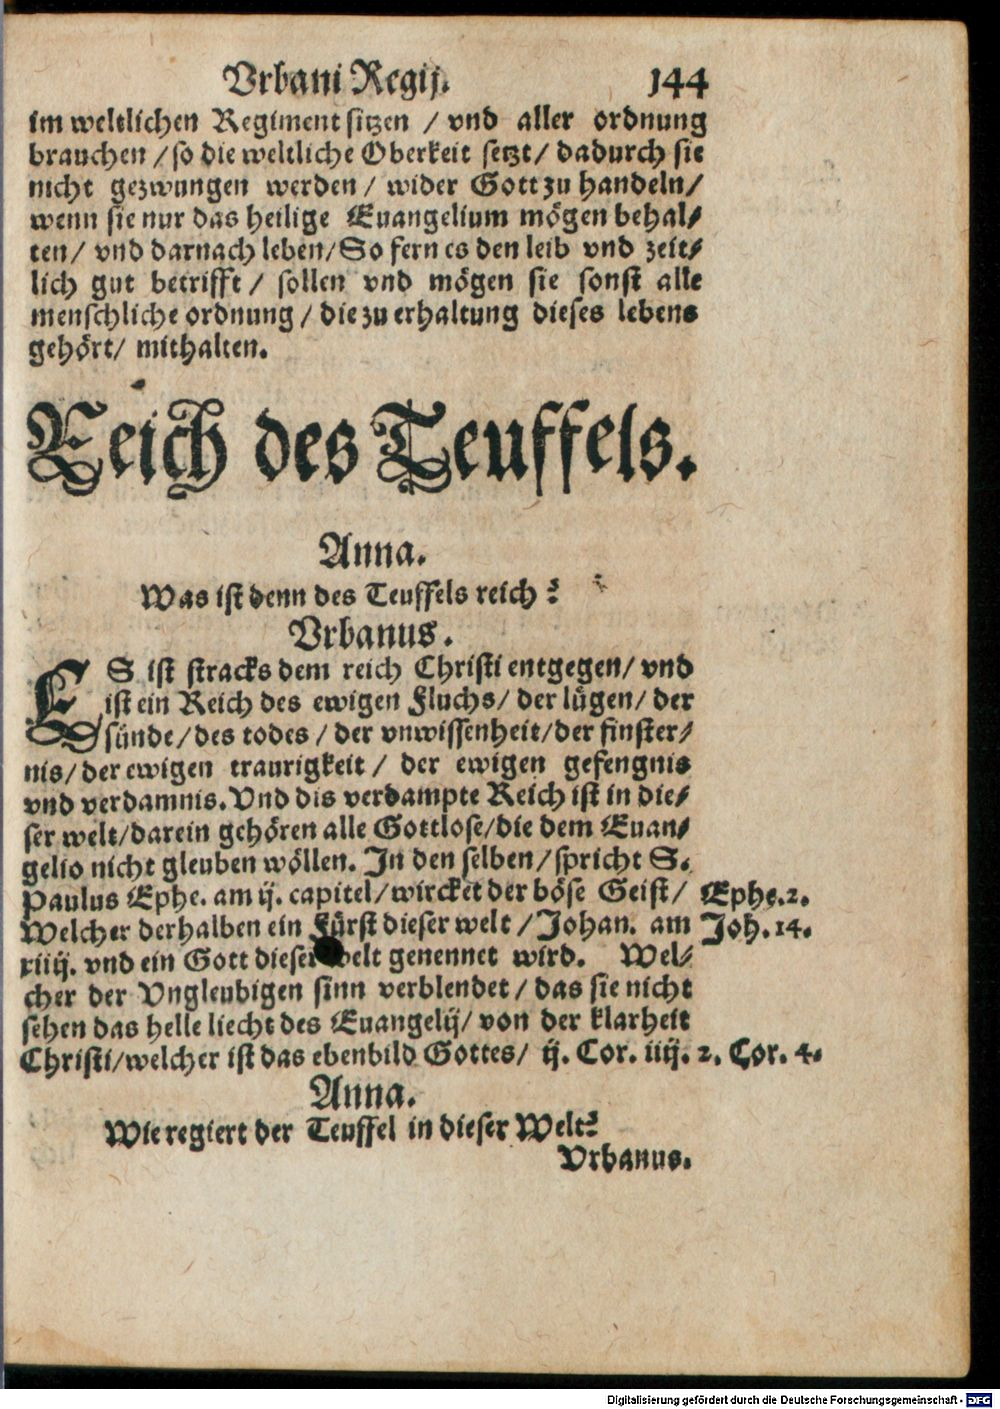 Vrbani Regij. 144
im weltlichen Regiment sitzen / vnd aller ordnung
brauchen / so die weltliche Oberkeit setzt / dadurch sie
nicht gezwungen werden / wider Gott zu handeln /
wenn sie nur das heilige Euangelium mögen behal⸗
ten / vnd darnach leben / So fern es den leib vnd zeit⸗
lich gut betrifft / sollen vnd mögen sie sonst alle
menschliche ordnung / die zu erhaltung dieses lebens
gehört / mithalten.
Reich des Teuffels.
Anna.
Was ist denn des Teuffels reich?
Vrbanus.
ES ist stracks dem reich Christi entgegen / vnd
ist ein Reich des ewigen Fluchs / der lügen / der
sünde / des todes / der vnwissenheit / der finster⸗
nis / der ewigen traurigkeit / der ewigen gefengnis
vnd verdamnis. Vnd dis verdampte Reich ist in die⸗
ser welt / darein gehören alle Gottlose / die dem Euan⸗
gelio nicht gleuben wöllen. In den selben / spricht S.
Paulus Ephe. am ij. capitel / wircket der böse Geist / Ephe. 2.
Welcher derhalben ein Fürst dieser welt / Johan. am Joh. 14.
xiiij. vnd ein Gott dieser welt genennet wird. Wel⸗
cher der Vngleubigen sinn verblendet / das sie nicht
sehen das helle liecht des Euangelij / von der klarheit
Christi / welcher ist das ebenbild Gottes / ij. Cor. iiij. 2. Cor. 4.
Anna.
Wie regiert der Teuffel in dieser Welt?
Vrbanus.
Digitalisierung gefördert durch die Deutsche Forschungsgemeinschaft - DFG